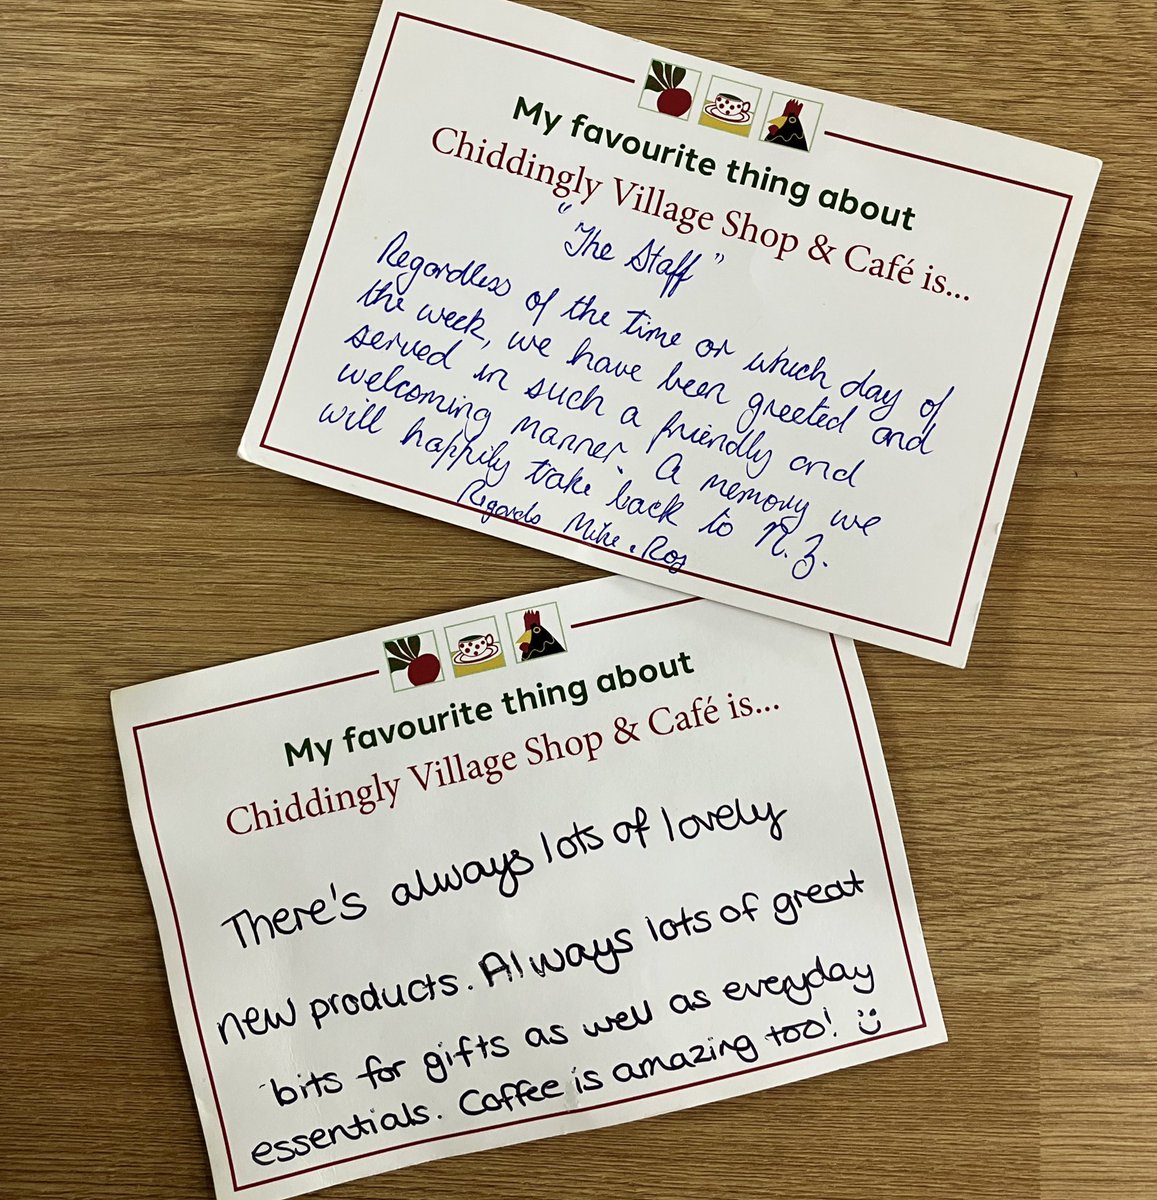 My favourite thing about
Chiddingly Village Shop & Café is...
"The Staff"
Regardless of the time or which day of
the week, we have been greeted and
served in such a friendly and
welcoming manner. A memory we
will happily take back to N.Z.
Regards Mike & Ros
My favourite thing about
Chiddingly Village Shop & Café is...
There's always lots of lovely
new products. Always lots of great
bits for gifts as well as everyday
essentials. Coffee is amazing too! :)